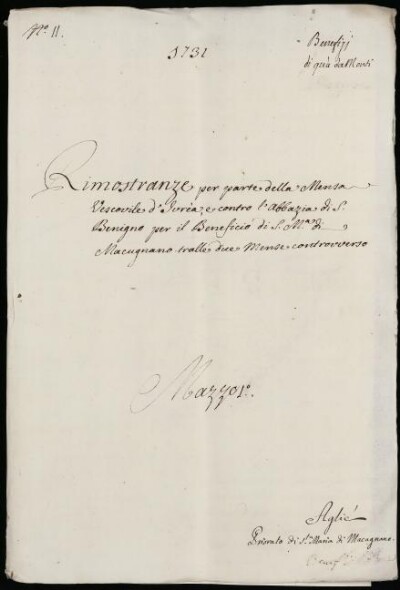 N.o 11.
1731
Benefizj
di quà da Monti
Rimostranze per parte della Mensa
Vescovile d'Ivrea e contro l'Abbazia di S.
Benigno per il Beneficio di S. M.a di
Macugnano tralle due Mense controverso
Mazzo 1.o
Agliè
Priorato di S.ta Maria di Macugnano.